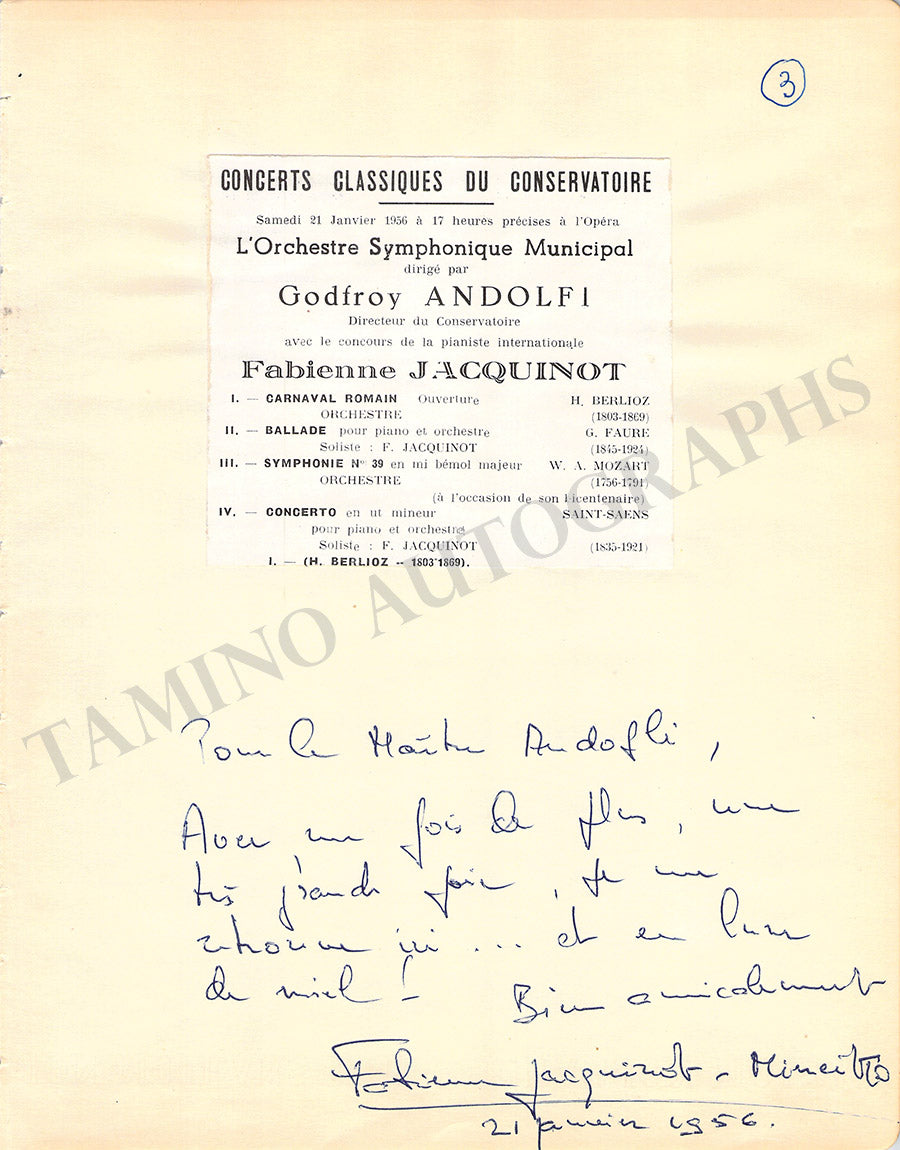 3
CONCERTS CLASSIQUES DU CONSERVATOIRE
Samedi 21 Janvier 1956 à 17 heures précises à l'Opéra
L'Orchestre Symphonique Municipal
dirigé par
Godfroy ANDOLFI
Directeur du Conservatoire
avec le concours de la pianiste internationale
Fabienne JACQUINOT
I. — CARNAVAL ROMAIN Ouverture H. BERLIOZ
ORCHESTRE (1803-1869)
II. — BALLADE pour piano et orchestre G. FAURE
Soliste : F. JACQUINOT (1845-1924)
III. — SYMPHONIE N° 39 en mi bémol majeur W. A. MOZART
ORCHESTRE (1756-1791)
(à l'occasion de son bicentenaire)
IV. — CONCERTO en ut mineur SAINT-SAENS
pour piano et orchestre
Soliste : F. JACQUINOT (1835-1921)
I. — (H. BERLIOZ -- 1803-1869).
TAMINO AUTOGRAPHS
Pour le Maître Andofli,
Avec une fois de plus, une
très grande joie, je me
retrouve ici ... et en lune
de miel !
Bien amicalement
Fabienne Jacquinot -
21 janvier 1956.